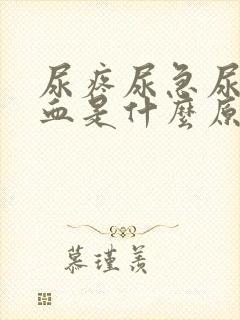 尿疼尿急尿
血是什麼原
慕瑾羨